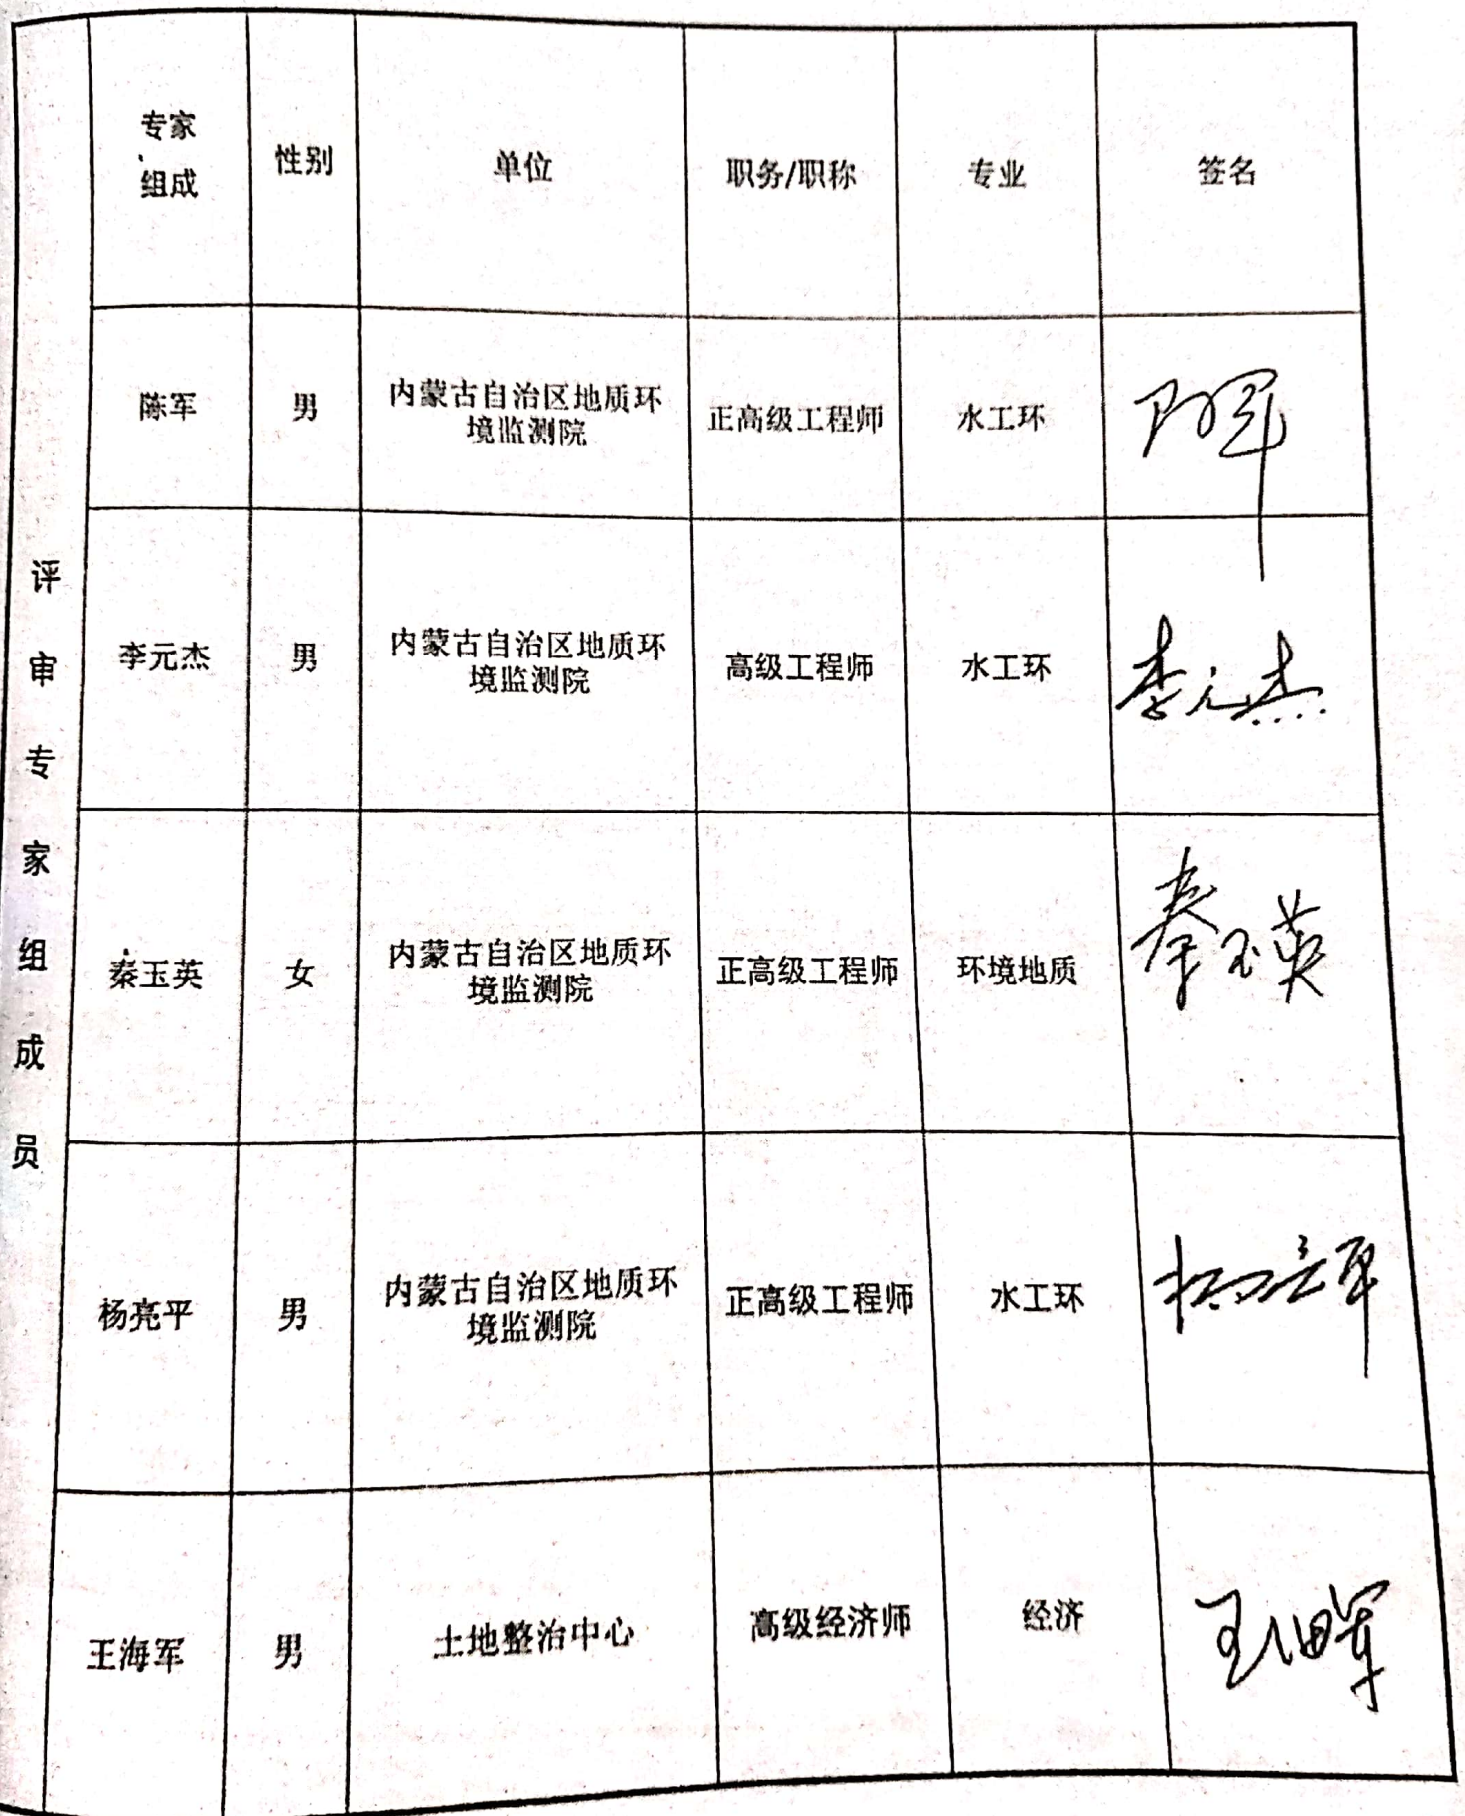 专家
组成
性别
单位
职务/职称
专业
签名
评审专家组成员
陈军
男
内蒙古自治区地质环
境监测院
正高级工程师
水工环
陈军
李元杰
男
内蒙古自治区地质环
境监测院
高级工程师
水工环
李元杰
秦玉英
女
内蒙古自治区地质环
境监测院
正高级工程师
环境地质
秦玉英
杨亮平
男
内蒙古自治区地质环
境监测院
正高级工程师
水工环
杨亮平
王海军
男
土地整治中心
高级经济师
经济
王海军